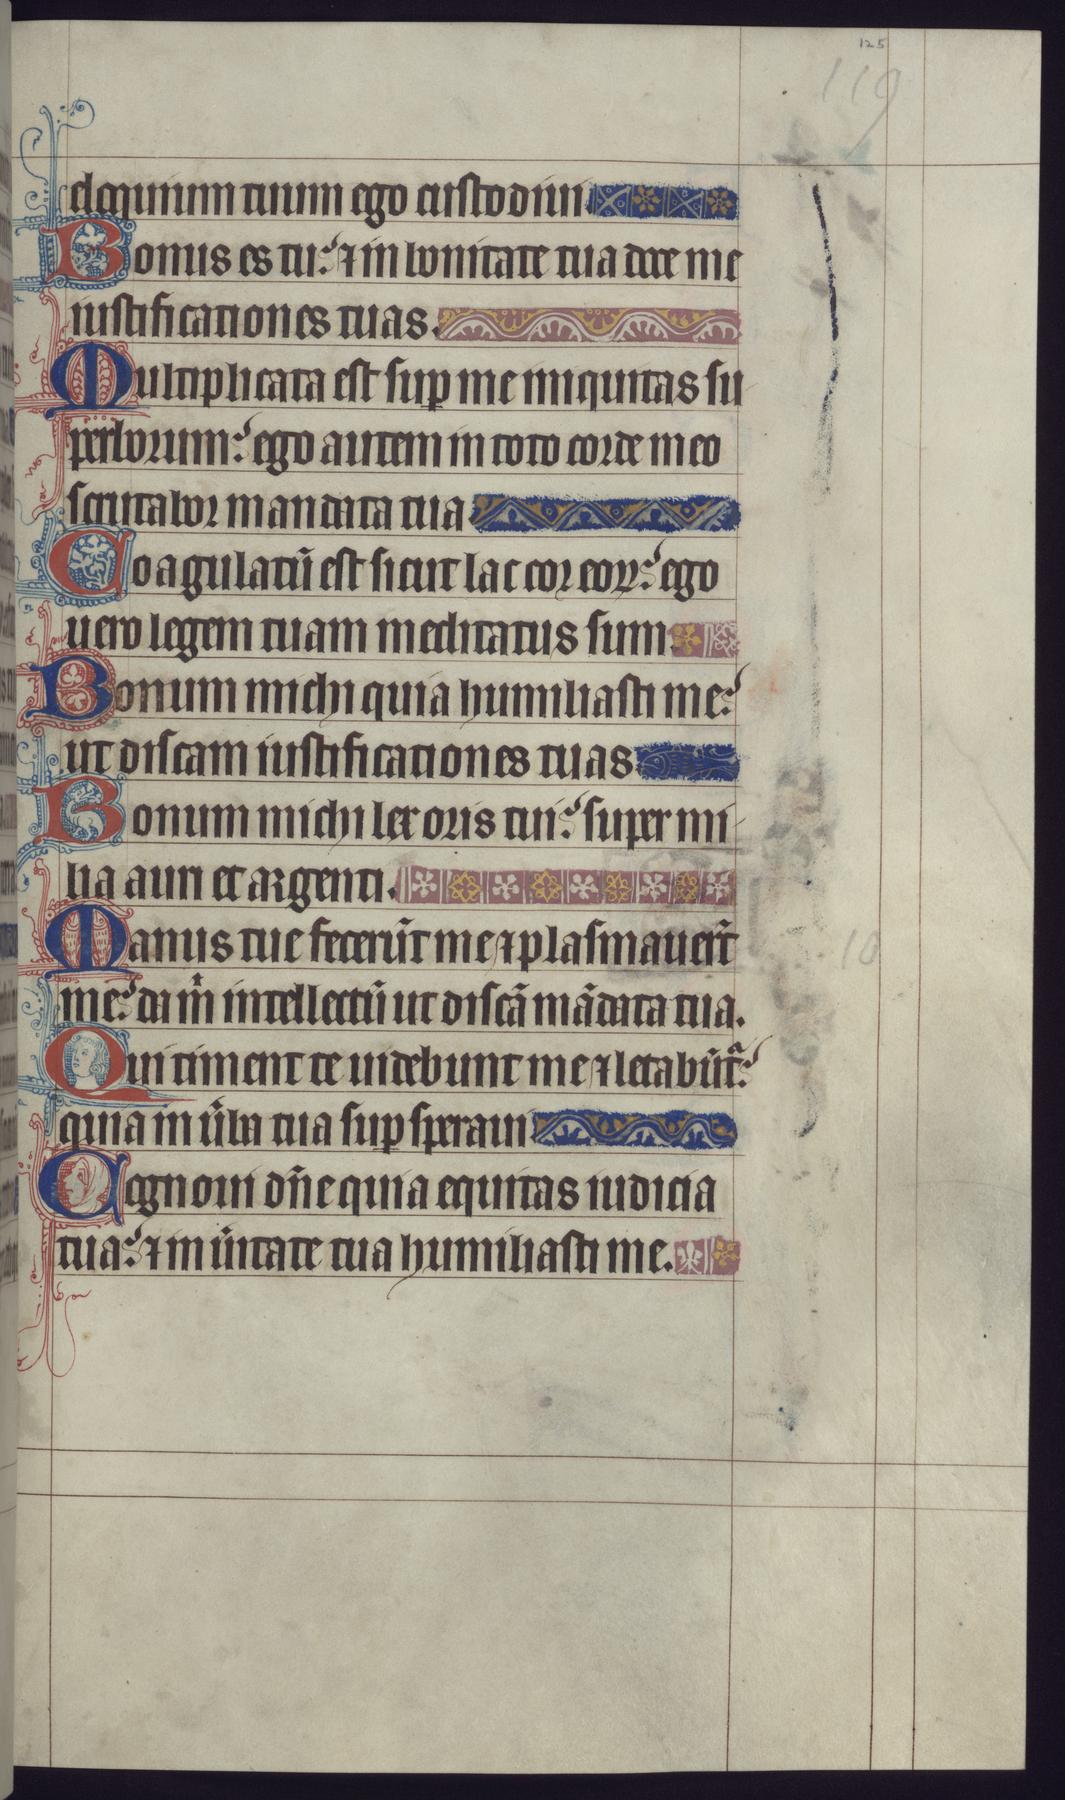 125
119
eloquium tuum ego custodiui.
Bonus es tu: ⁊ in bonitate tua doce me
iustificationes tuas.
Multiplicata est sup me iniquitas su
perborum: ego autem in toto corde meo
scrutabor mandata tua
Coagulatū est sicut lac cor eoꝝ: ego
uero legem tuam meditatus sum.
Bonum michi quia humiliasti me:
ut discam iustificationes tuas
Bonum michi lex oris tui: super mi-
lia auri et argenti.
Manus tue fecerūt me ⁊ plasmauerūt
me: da m̄ intellectū ut discā mādata tua.
Qui timent te uidebunt me ⁊ letabūtᵃ:
quia in ūba tua sup speraui
Cognoui dn̄e quia equitas iudicia
tua: ⁊ in ūitate tua humiliasti me.
10